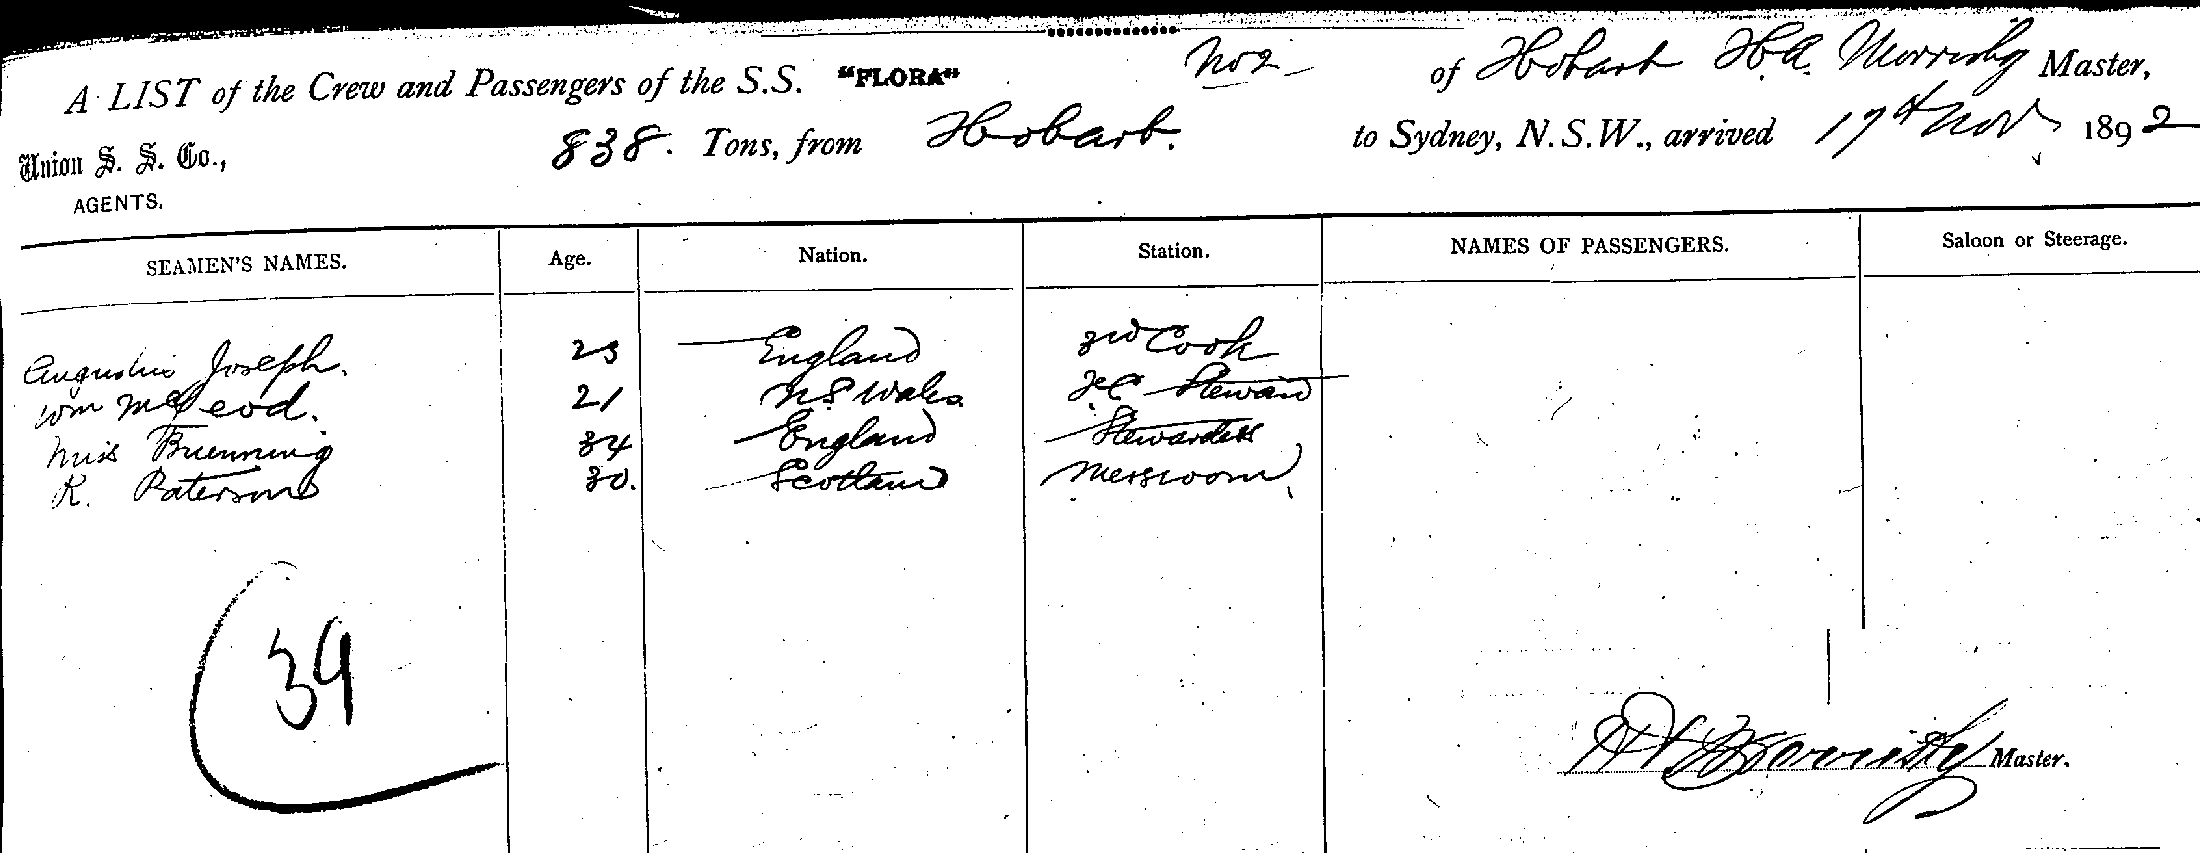 A LIST of the Crew and Passengers of the S.S. "FLORA" No 2 of Hobart H.A. Morrisby Master,
Union S. S. Co., 838. Tons, from Hobart. to Sydney, N.S.W., arrived 17th Nov 1892
AGENTS.
SEAMEN'S NAMES. Age. Nation. Station. NAMES OF PASSENGERS. Saloon or Steerage.
Joseph. 23 England 3rd Cook
Wm McLeod. 21 N.S Wales. F.C. Steward
Miss Bruenning 34 England Stewardess
R. Paterson 30. Scotland Messroom
39
Morrisby Master.